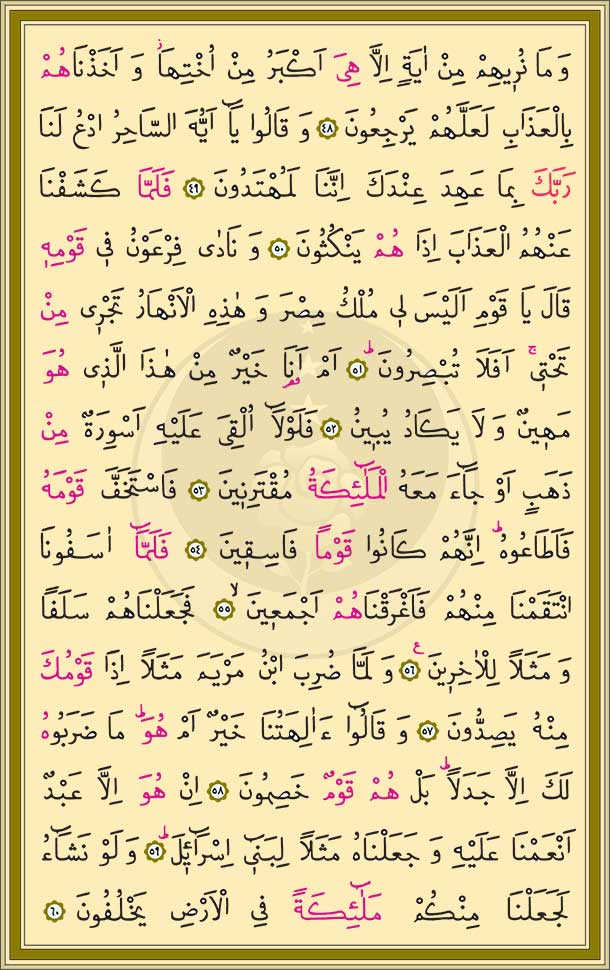 وَ مَا نُرِيهِمْ مِنْ اٰيَةٍ اِلَّا هِيَ اَكْبَرُ مِنْ اُخْتِهَاۘ وَ اَخَذْنَاهُمْ
بِالْعَذَابِ لَعَلَّهُمْ يَرْجِعُونَ ﴿٤٨﴾ وَ قَالُوا يَٓا اَيُّهَ السَّاحِرُ ادْعُ لَنَا
رَبَّكَ بِمَا عَهِدَ عِنْدَكَ اِنَّنَا لَمُهْتَدُونَ ﴿٤٩﴾ فَلَمَّا كَشَفْنَا
عَنْهُمُ الْعَذَابَ اِذَا هُمْ يَنْكُثُونَ ﴿٥٠﴾ وَ نَادٰى فِرْعَوْنُ فٖي قَوْمِهٖ
قَالَ يَا قَوْمِ اَلَيْسَ لٖي مُلْكُ مِصْرَ وَ هٰذِهِ الْاَنْهَارُ تَجْرٖي مِنْ
تَحْتٖيۚ اَفَلَا تُبْصِرُونَۜ ﴿٥١﴾ اَمْ اَنَا۬ خَيْرٌ مِنْ هٰذَا الَّذٖي هُوَ
مَهٖينٌ وَ لَا يَكَادُ يُبٖينُ ﴿٥٢﴾ فَلَوْلَٓا اُلْقِيَ عَلَيْهِ اَسْوِرَةٌ مِنْ
ذَهَبٍ اَوْ جَٓاءَ مَعَهُ الْمَلٰٓئِكَةُ مُقْتَرِنٖينَ ﴿٥٣﴾ فَاسْتَخَفَّ قَوْمَهُ
فَاَطَاعُوهُۜ اِنَّهُمْ كَانُوا قَوْماً فَاسِقٖينَ ﴿٥٤﴾ فَلَمَّٓا اٰسَفُونَا
انْتَقَمْنَا مِنْهُمْ فَاَغْرَقْنَاهُمْ اَجْمَعٖينَۙ ﴿٥٥﴾ فَجَعَلْنَاهُمْ سَلَفاً
وَ مَثَلاً لِلْاٰخِرٖينَ ﴿٥٦﴾ ع وَ لَمَّا ضُرِبَ ابْنُ مَرْيَمَ مَثَلاً اِذَا قَوْمُكَ
مِنْهُ يَصِدُّونَ ﴿٥٧﴾ وَ قَالُٓوا ءَاٰلِهَتُنَا خَيْرٌ اَمْ هُوَۜ مَا ضَرَبُوهُ
لَكَ اِلَّا جَدَلاًۜ بَلْ هُمْ قَوْمٌ خَصِمُونَ ﴿٥٨﴾ اِنْ هُوَ اِلَّا عَبْدٌ
اَنْعَمْنَا عَلَيْهِ وَ جَعَلْنَاهُ مَثَلاً لِبَنٖٓي اِسْرَٓائٖلَۜ ﴿٥٩﴾ وَ لَوْ نَشَٓاءُ
لَجَعَلْنَا مِنْكُمْ مَلٰٓئِكَةً فِي الْاَرْضِ يَخْلُفُونَ ﴿٦٠﴾